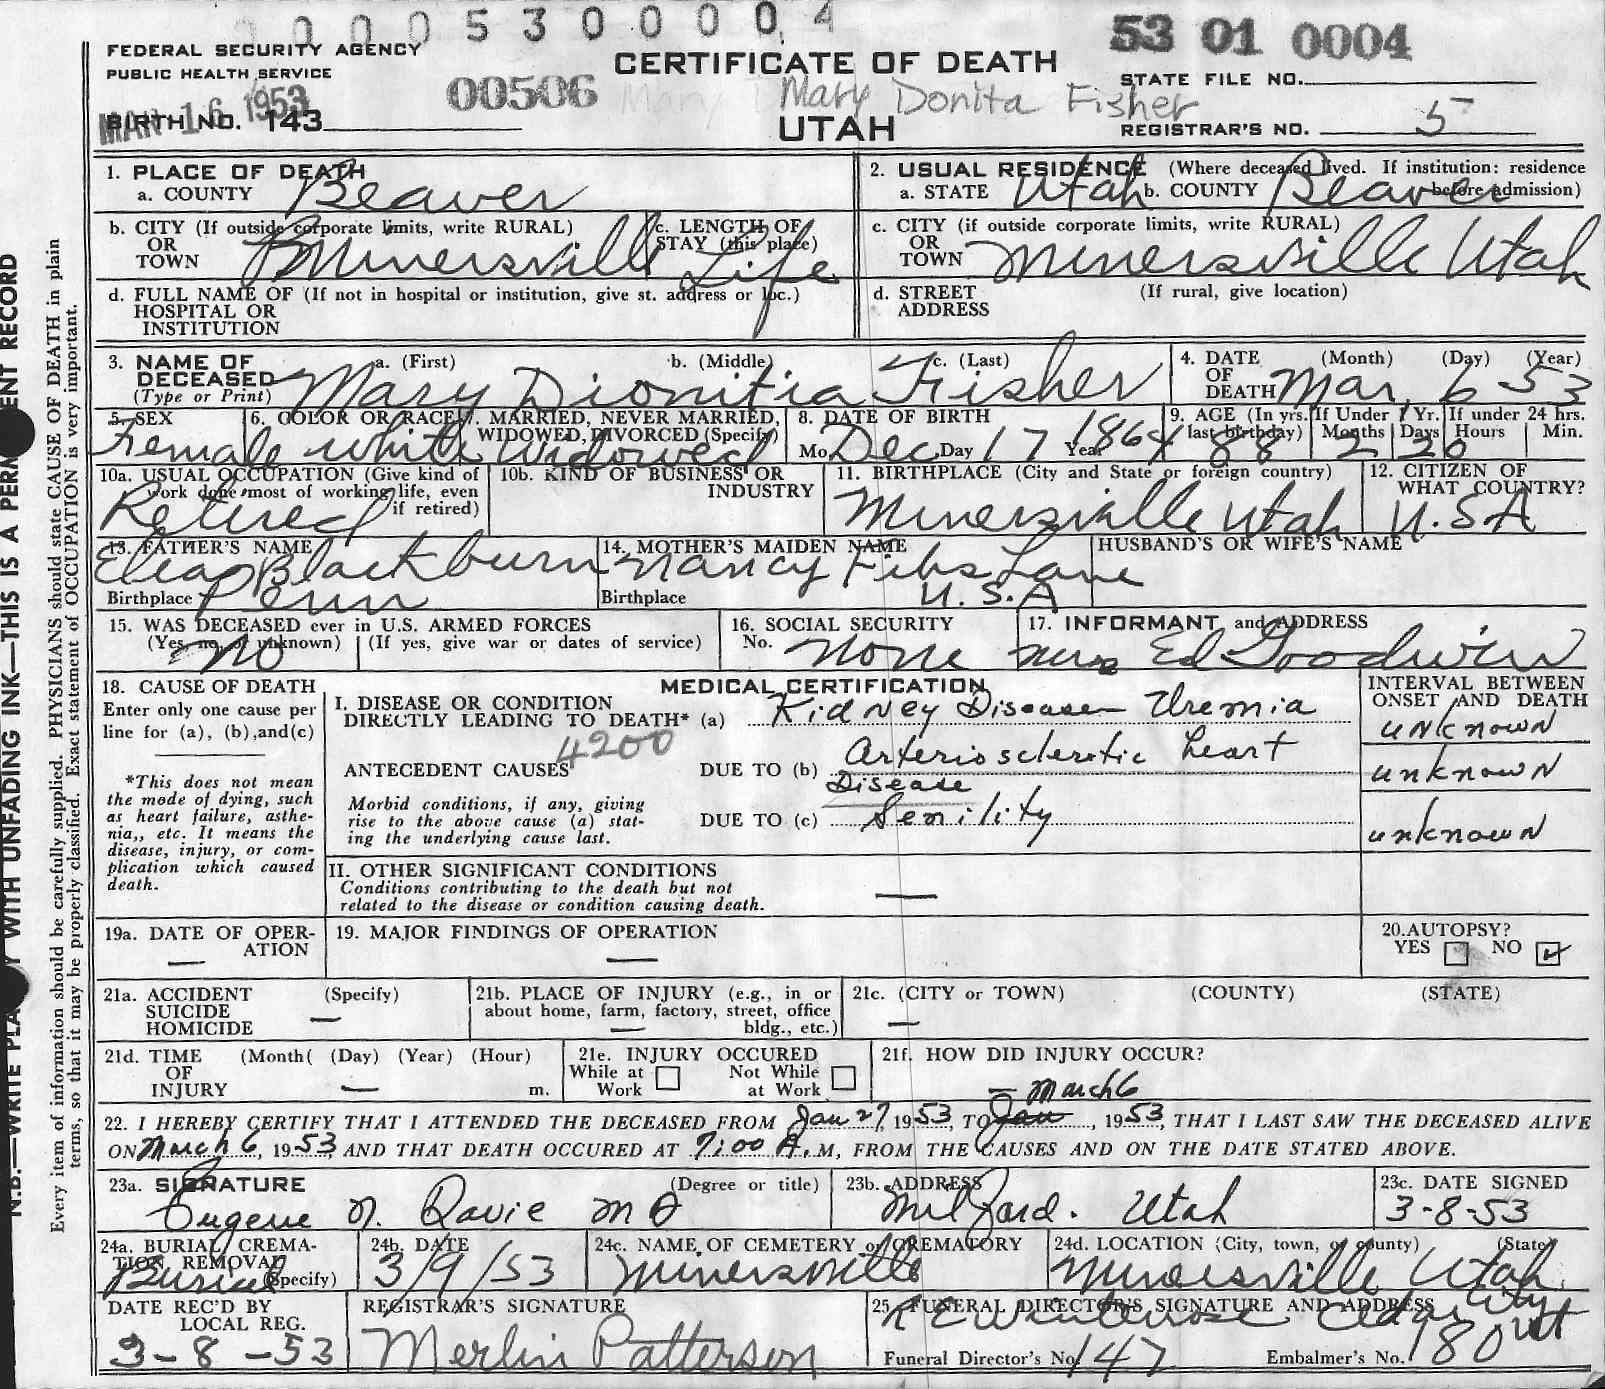 0 0 0 0 5 3 0 0 0 0 4
53 01 0004
FEDERAL SECURITY AGENCY
PUBLIC HEALTH SERVICE
MAR 16 1953
BIRTH NO. 143
00506
CERTIFICATE OF DEATH
Mary Donita Fisher
UTAH
STATE FILE NO.
REGISTRAR'S NO. 5
1. PLACE OF DEATH
a. COUNTY Beaver
2. USUAL RESIDENCE (Where deceased lived. If institution: residence before admission)
a. STATE Utah b. COUNTY Beaver
b. CITY (If outside corporate limits, write RURAL) OR TOWN Minersville
c. LENGTH OF STAY (this place) Life
c. CITY (if outside corporate limits, write RURAL) OR TOWN Minersville Utah
d. FULL NAME OF (If not in hospital or institution, give st. address or loc.) HOSPITAL OR INSTITUTION
d. STREET ADDRESS (If rural, give location)
3. NAME OF DECEASED (Type or Print) a. (First) b. (Middle) c. (Last)
Mary Dionitia Fisher
4. DATE OF DEATH (Month) (Day) (Year)
Mar, 6 53
5. SEX Female
6. COLOR OR RACE White
7. MARRIED, NEVER MARRIED, WIDOWED, DIVORCED (Specify) Widowed
8. DATE OF BIRTH Mo. Dec Day 17 Year 1864
9. AGE (In yrs. last birthday) 88
If Under 1 Yr. Months 2 Days 20
If under 24 hrs. Hours Min.
10a. USUAL OCCUPATION (Give kind of work done most of working life, even if retired) Retired
10b. KIND OF BUSINESS OR INDUSTRY
11. BIRTHPLACE (City and State or foreign country) Minersville Utah
12. CITIZEN OF WHAT COUNTRY? U.S.A
13. FATHER'S NAME Elias Blackburn
Birthplace Penn
14. MOTHER'S MAIDEN NAME Nancy Lane
Birthplace U.S.A
HUSBAND'S OR WIFE'S NAME
15. WAS DECEASED ever in U.S. ARMED FORCES
(Yes, no, or unknown) (If yes, give war or dates of service)
No
16. SOCIAL SECURITY No. None
17. INFORMANT and ADDRESS
Mrs Ed Goodwin
18. CAUSE OF DEATH
Enter only one cause per line for (a), (b), and (c)
*This does not mean the mode of dying, such as heart failure, asthenia,, etc. It means the disease, injury, or complication which caused death.
MEDICAL CERTIFICATION
INTERVAL BETWEEN ONSET AND DEATH
I. DISEASE OR CONDITION DIRECTLY LEADING TO DEATH* (a) Kidney Disease Uremia
unknown
4200
ANTECEDENT CAUSES DUE TO (b) Arteriosclerotic heart Disease
unknown
Morbid conditions, if any, giving rise to the above cause (a) stating the underlying cause last.
DUE TO (c) Senility
unknown
II. OTHER SIGNIFICANT CONDITIONS
Conditions contributing to the death but not related to the disease or condition causing death. —
19a. DATE OF OPERATION —
19. MAJOR FINDINGS OF OPERATION —
20. AUTOPSY?
YES NO
21a. ACCIDENT SUICIDE HOMICIDE (Specify) —
21b. PLACE OF INJURY (e.g., in or about home, farm, factory, street, office bldg., etc.) —
21c. (CITY or TOWN) (COUNTY) (STATE) —
21d. TIME OF INJURY (Month( (Day) (Year) (Hour) m. —
21e. INJURY OCCURED
While at Work Not While at Work
21f. HOW DID INJURY OCCUR? —
22. I HEREBY CERTIFY THAT I ATTENDED THE DECEASED FROM Jan 27, 1953, TO Jan March 6, 1953, THAT I LAST SAW THE DECEASED ALIVE
ON March 6, 1953, AND THAT DEATH OCCURED AT 7:00 A.M, FROM THE CAUSES AND ON THE DATE STATED ABOVE.
23a. SIGNATURE (Degree or title) Eugene N. Davie MD
23b. ADDRESS Milford. Utah
23c. DATE SIGNED 3-8-53
24a. BURIAL, CREMATION REMOVAL (Specify) Burial
24b. DATE 3/9/53
24c. NAME OF CEMETERY or CREMATORY Minersville
24d. LOCATION (City, town, or county) (State) Minersville Utah
DATE REC'D BY LOCAL REG. 3-8-53
REGISTRAR'S SIGNATURE Merlin Patterson
25. FUNERAL DIRECTOR'S SIGNATURE AND ADDRESS
Cedar City Ut
Funeral Director's No. 147 Embalmer's No. 180
Every item of information should be carefully supplied. PHYSICIANS should state CAUSE OF DEATH in plain
terms, so that it may be properly classified. Exact statement of OCCUPATION is very important.